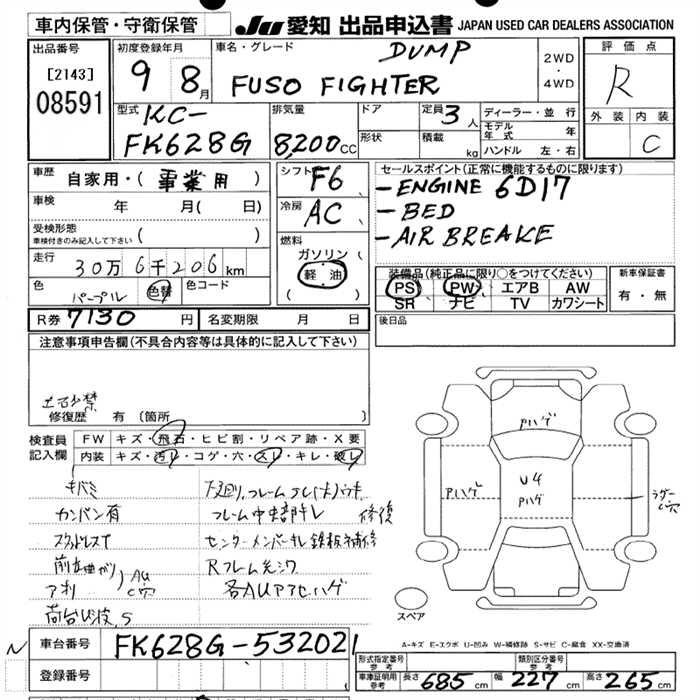 車内保管・守衛保管
JU 愛知 出品申込書 JAPAN USED CAR DEALERS ASSOCIATION
出品番号
[2143]
08591
初度登録年月
9 8月
車名・グレード
DUMP
FUSO FIGHTER
2WD
・
4WD
評価点
R
外装 内装
C
型式 KC-
FK628G
排気量
8,200CC
ドア
形状
定員 3人
積載 kg
ディーラー・並行
モデル年式 年
ハンドル 左・右
車歴 自家用・(事業用)
車検 年 月( 日)
受検形態 ( )
車検付きのみ記入して下さい
走行 30万6千206km
色 パープル 色替 色コード
シフト F6
冷房 AC
燃料
ガソリン
軽・油
( )
セールスポイント(正常に機能するものに限ります)
-ENGINE 6D17
-BED
-AIR BREAKE
装備品(純正品に限り○をつけてください)
PS PW エアB AW
SR ナビ TV カワシート
新車保証書
有・無
R券 7130円 名変期限 月 日
後日品
注意事項申告欄(不具合内容等は具体的に記入して下さい)
修復歴 有(箇所
検査員記入欄
FW キズ・飛石・ヒビ割・リペア跡・X要
内装 キズ・汚れ・コゲ・穴・スレ・キレ・破レ
キバミ
カンバン有
AU
C穴
フレーム中央部キレ 修復
センターメンバーキレ 鉄板補修
Pハゲ
Pハゲ
U4
Pハゲ
Pハゲ
C穴
スペア
A-キズ E-エクボ U-凹み W-補修跡 S-サビ C-腐食 XX-交換済
車台番号 FK628G-532021
登録番号
形式指定番号 参考
類別区分番号 参考
車庫証明用 参考 長さ 685cm 幅 227cm 高さ 265cm